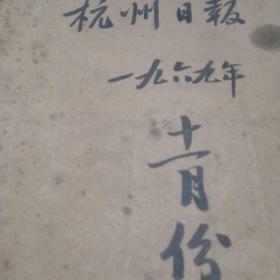 杭州日报
一九六九年
十一月
份